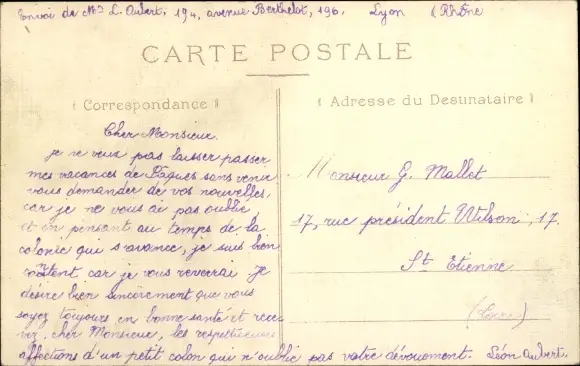 Envoi de Mr L. Aubert, 194, avenue Berthelot, 196. Lyon (Rhône
CARTE POSTALE
(Correspondance)
(Adresse du Destinataire)
Cher Monsieur.
je ne veux pas laisser passer
mes vacances de Pâques sans venir
vous demander de vos nouvelles,
car je ne vous ai pas oublié
et en pensant au temps de la
colonie qui s'avance, je suis bien
content car je vous reverrai. Je
désire bien sincèrement que vous
soyez toujours en bonne santé et rece
vez, cher Monsieur, les respectueuses
affections d'un petit colon qui n'oublie pas votre dévouement. Léon Aubert.
Monsieur G. Mallet
17, rue président Wilson, 17.
St Etienne
(Loire)